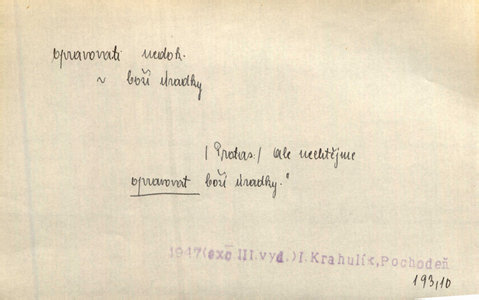 opravovati nedok.
~ boží úradky
/Protas./ ale nechtějme
opravovat boží úradky."
1947(exc III.vyd.)I. Krahulík, Pochodeň
193,10